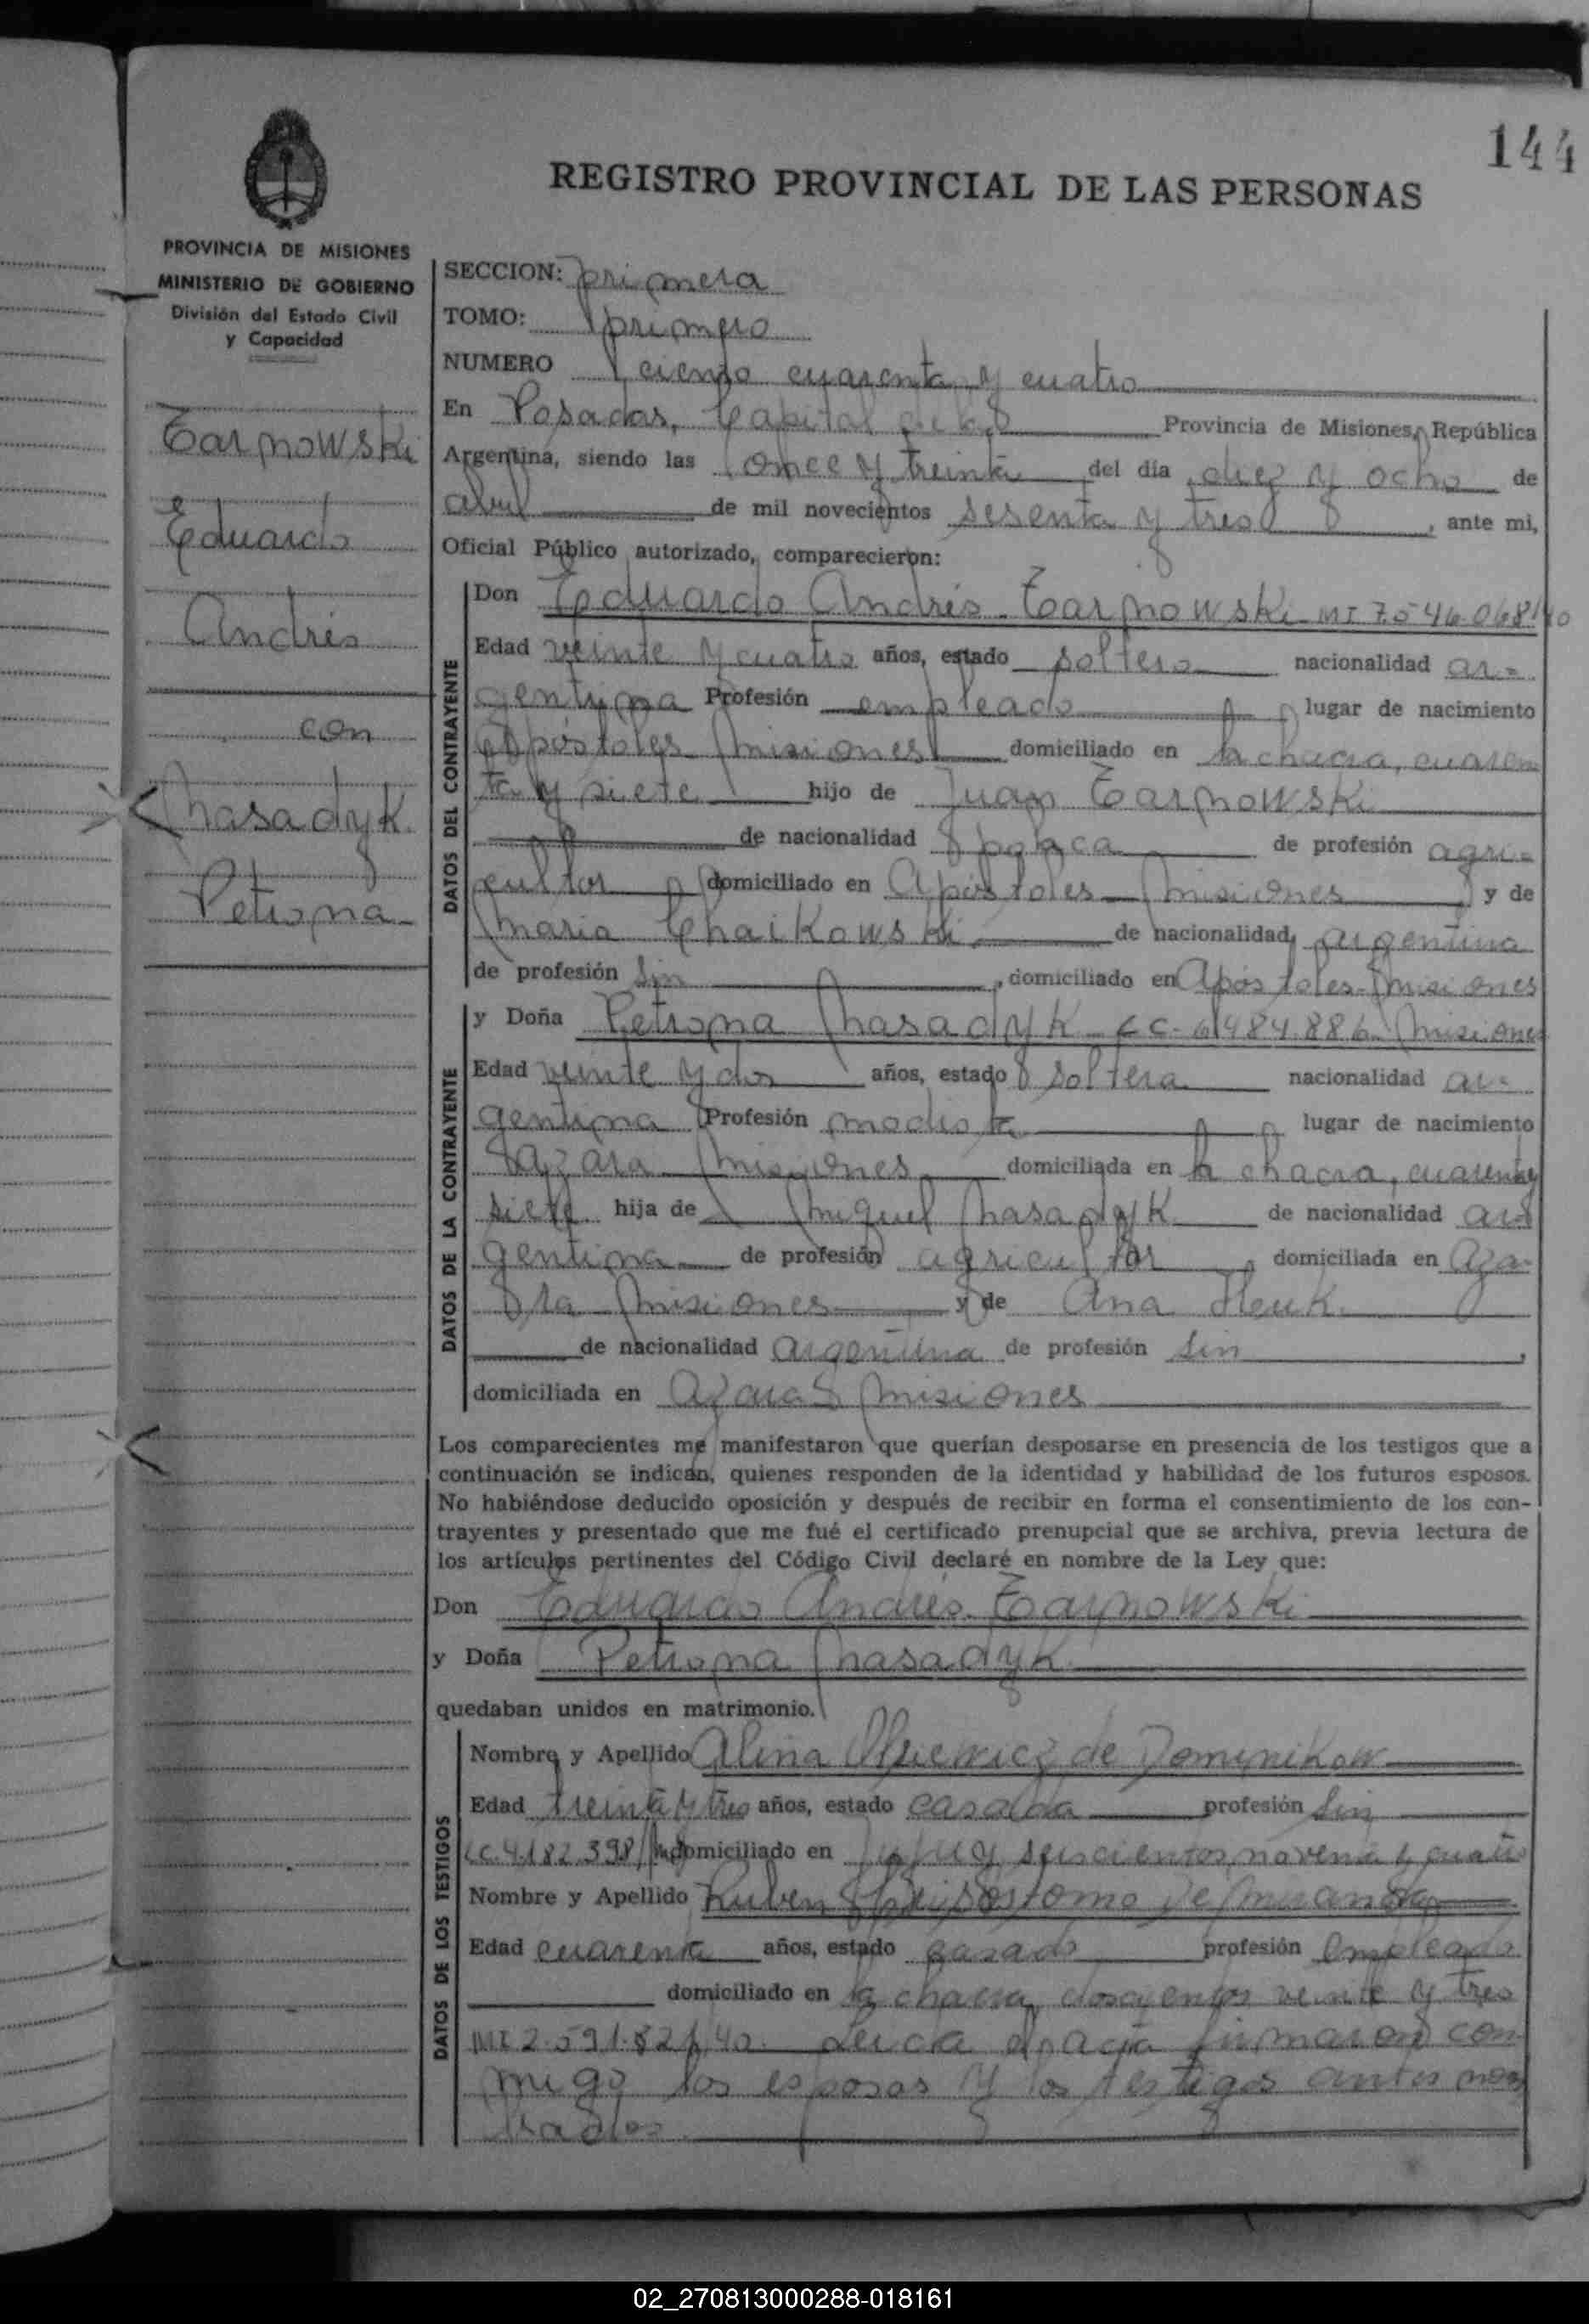 144
REGISTRO PROVINCIAL DE LAS PERSONAS
PROVINCIA DE MISIONES
MINISTERIO DE GOBIERNO
División del Estado Civil
y Capacidad
Tarnowski
Eduardo
Andrés
con
Masadyk
Petrona
SECCION: primera
TOMO: primero
NUMERO ciento cuarenta y cuatro
En Posadas, Capital de la Provincia de Misiones, República
Argentina, siendo las once y treinta del día diez y ocho de
abril de mil novecientos sesenta y tres, ante mi,
Oficial Público autorizado, comparecieron:
DATOS DEL CONTRAYENTE
Don Eduardo Andrés Tarnowski MI 7.546.068
Edad veinte y cuatro años, estado soltero nacionalidad ar-
gentina Profesión empleado lugar de nacimiento
Apóstoles Misiones domiciliado en la chacra, cuaren
ta y siete hijo de Juan Tarnowski
de nacionalidad polaca de profesión agri-
cultor domiciliado en Apóstoles Misiones y de
Maria Chaikowski de nacionalidad argentina
de profesión sin, domiciliado en Apóstoles Misiones
DATOS DE LA CONTRAYENTE
y Doña Petrona Masadyk LC 6.484.886 Misiones
Edad veinte y dos años, estado soltera nacionalidad ar-
gentina Profesión modista lugar de nacimiento
Azara Misiones domiciliada en la chacra, cuarenta y
siete hija de Miguel Masadyk de nacionalidad ar-
gentina de profesión agricultor domiciliada en Aza-
ra Misiones y de Ana
de nacionalidad argentina de profesión sin,
domiciliada en Azara Misiones
Los comparecientes me manifestaron que querían desposarse en presencia de los testigos que a
continuación se indican, quienes responden de la identidad y habilidad de los futuros esposos.
No habiéndose deducido oposición y después de recibir en forma el consentimiento de los con-
trayentes y presentado que me fué el certificado prenupcial que se archiva, previa lectura de
los artículos pertinentes del Código Civil declaré en nombre de la Ley que:
Don Eduardo Andrés Tarnowski
y Doña Petrona Masadyk
quedaban unidos en matrimonio.
DATOS DE LOS TESTIGOS
Nombre y Apellido Alina de Dominikow
Edad treinta y tres años, estado casada profesión sin
LC.4.182.398 domiciliado en Jujuy seiscientos noventa y cuatro
Nombre y Apellido Ruben De Miranda
Edad cuarenta años, estado casado profesión empleado
domiciliado en la chacra doscientos veinte y tres
MI 2.591.821. Leida el acta firmaron con
migo los esposos y los testigos antes nom
brados.
02_270813000288-018161